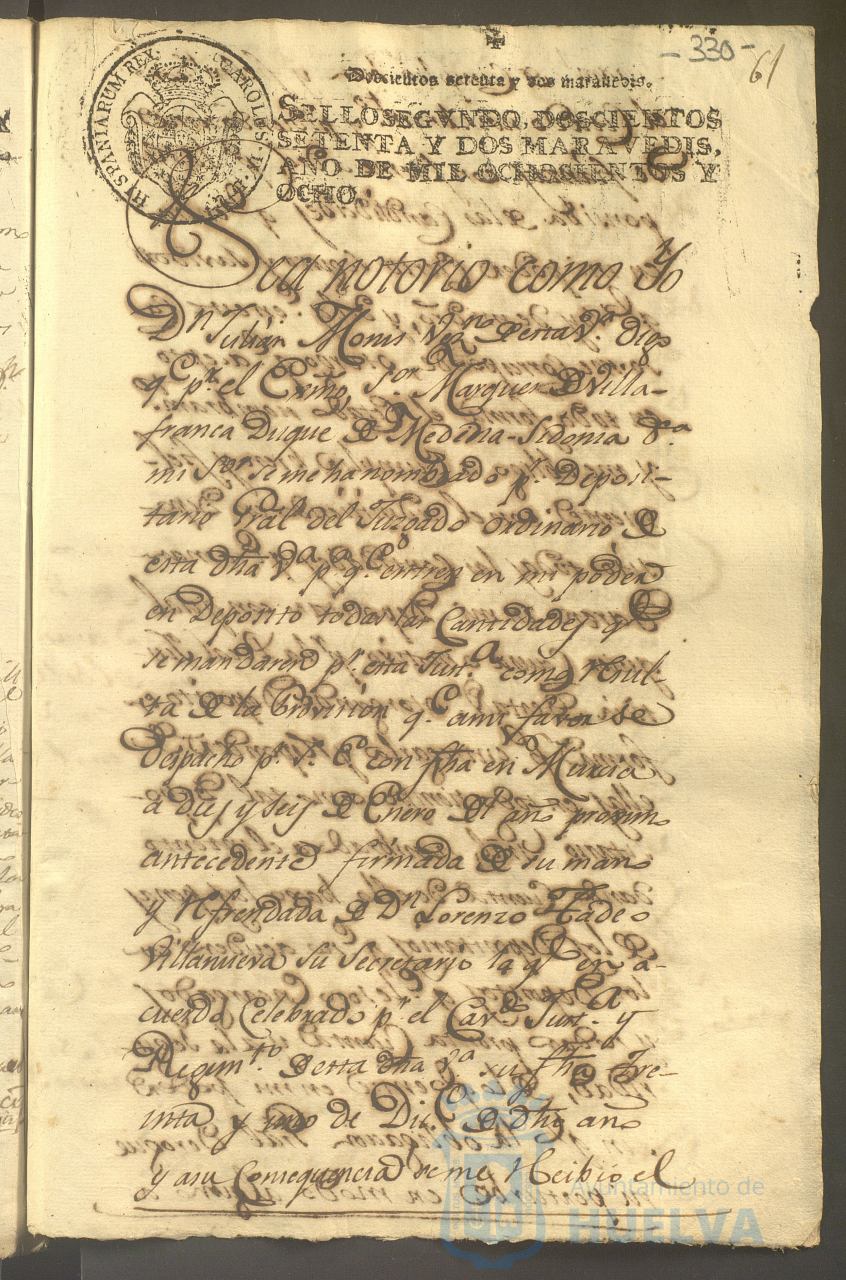 -330-
61
Doscientos setenta y dos maravedis.
SELLO SEGVNDO, DOSCIENTOS
SETENTA Y DOS MARAVEDIS,
AÑO DE MIL OCHOCIENTOS Y
OCHO.
HISPANIARUM REX. CAROLUS IV. D. G.
Sea notorio como Yo
Dn Julián Monis Vezno Desta Va digo
qe pr el Exmo. Sor Marques D Villa-
franca Duque De Medina-Sidonia &a
mi Sor se me ha nombrado pr Deposi-
tario Gral del Juzgado ordinario De
esta dha Va pa qe entren en mi poder
en Deposito todas las Cantidades qe
se mandaren pr esta Justa como resul-
ta De la Provision qe a mi favor se
Despacho pr S. Ea con fha en Murcia
a diez y seis De Enero Del año proximo
antecedente firmada De su mano
y refrendada De Dn Lorenzo Tadeo
Villanueva Su Secretario la ql en a-
cuerdo Celebrado pr el Cavdo Justa y
Regimto Desta dha Va su fha Tre-
inta y uno de Dice De dho año
y a su Consequencia se me Recibio el
Ayuntamiento de
HUELVA